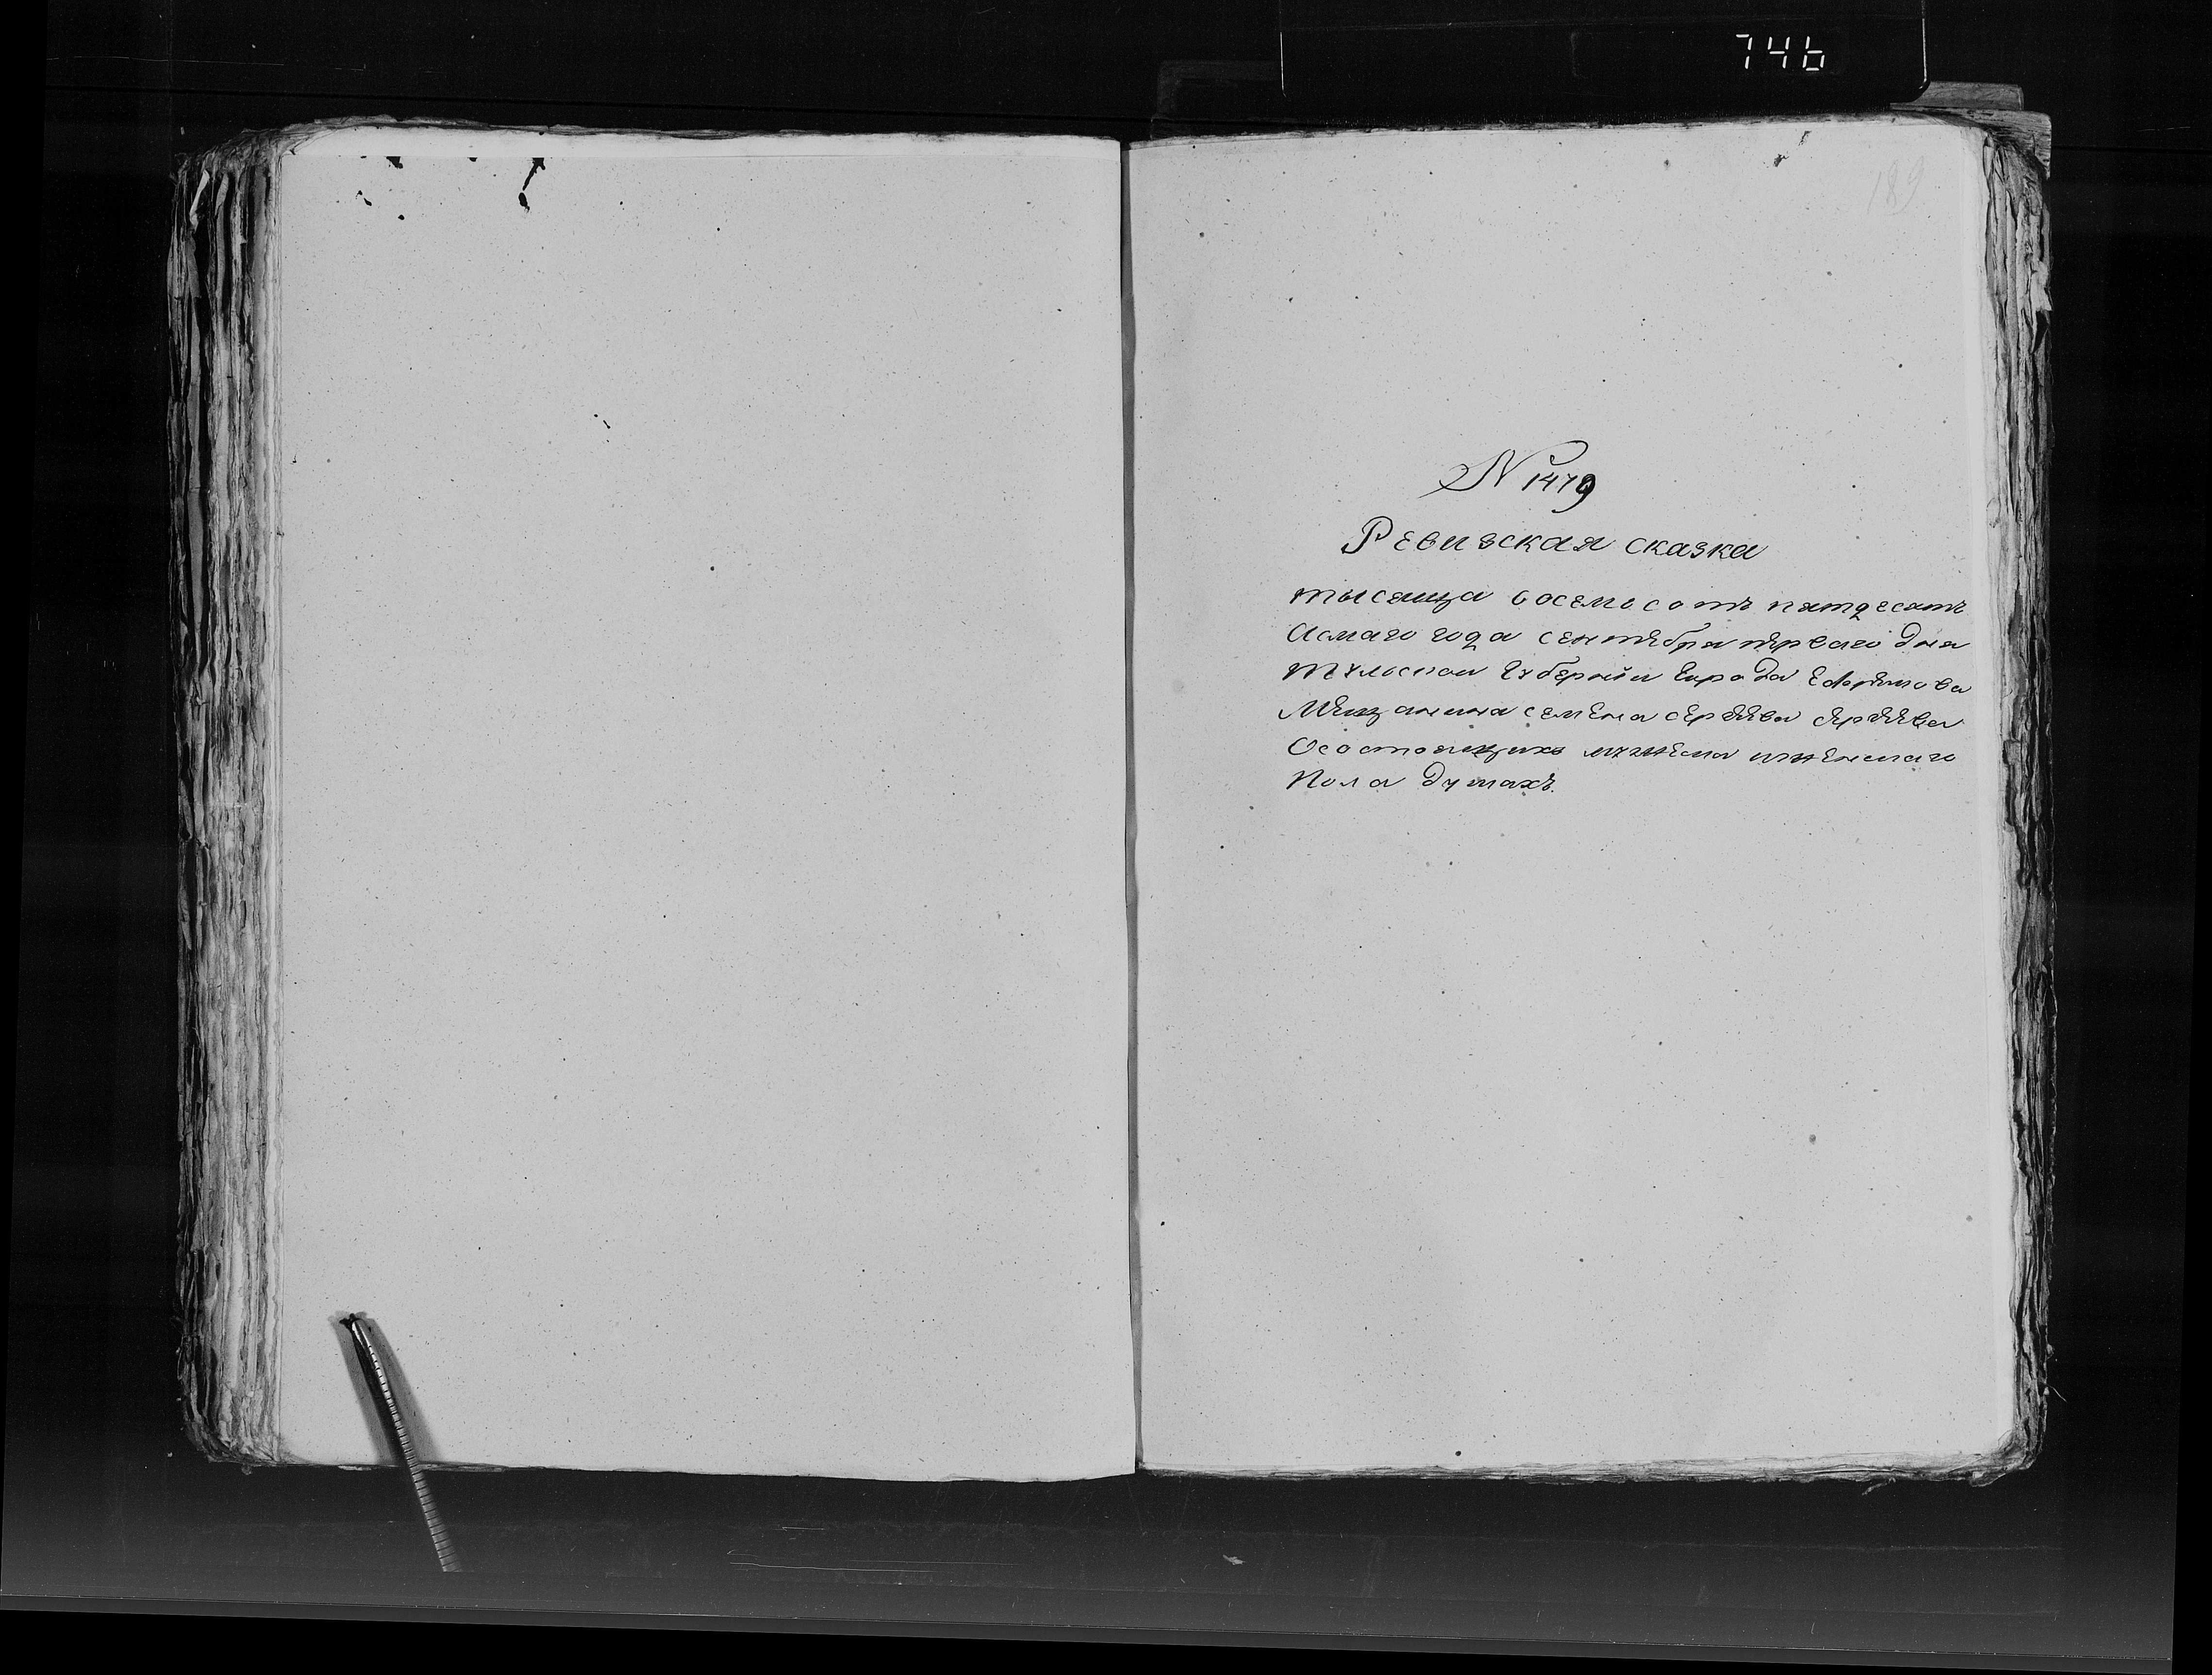 746
189
N 1479
Ревизская сказка
тысеща восемьсотъ пятдесятъ
Асмаго года сентября перваго дня
тульской Губернии Города Ефремова
Мещанина семена сергеева сергеева
Осостоящихъ мужеска иженскаго
Пола душахъ.